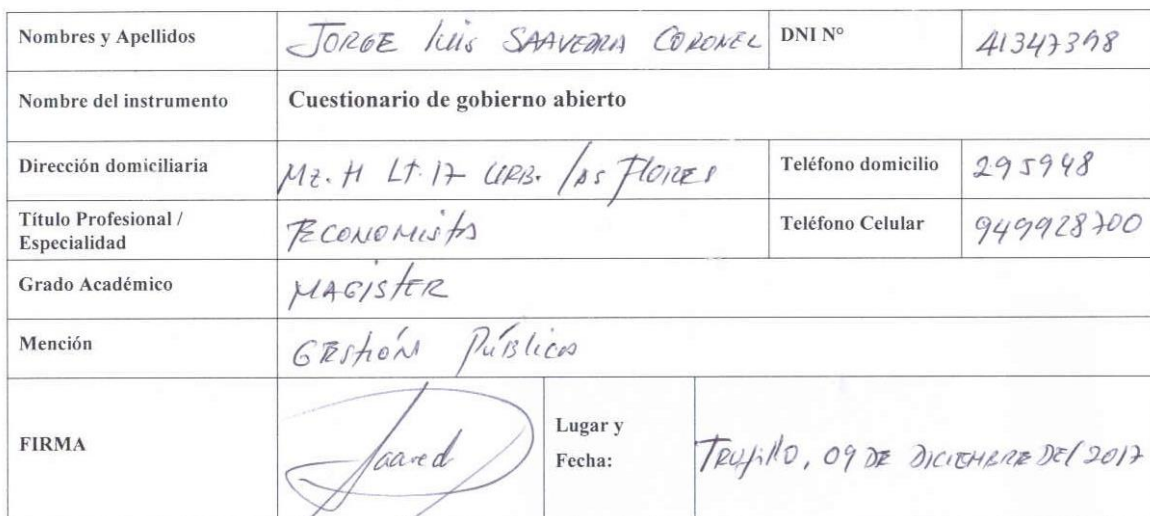 Nombres y Apellidos JORGE Luis SAAVEDRA CORONEL DNI N° 41347398
Nombre del instrumento Cuestionario de gobierno abierto
Dirección domiciliaria Mz. H Lt. 17 URB. las Flores Teléfono domicilio 295948
Título Profesional / Especialidad Economista Teléfono Celular 949928700
Grado Académico MAGISTER
Mención GESTIÓN Pública
FIRMA Saaved Lugar y Fecha: TRUJILLO, 09 DE DICIEMBRE DEL 2017